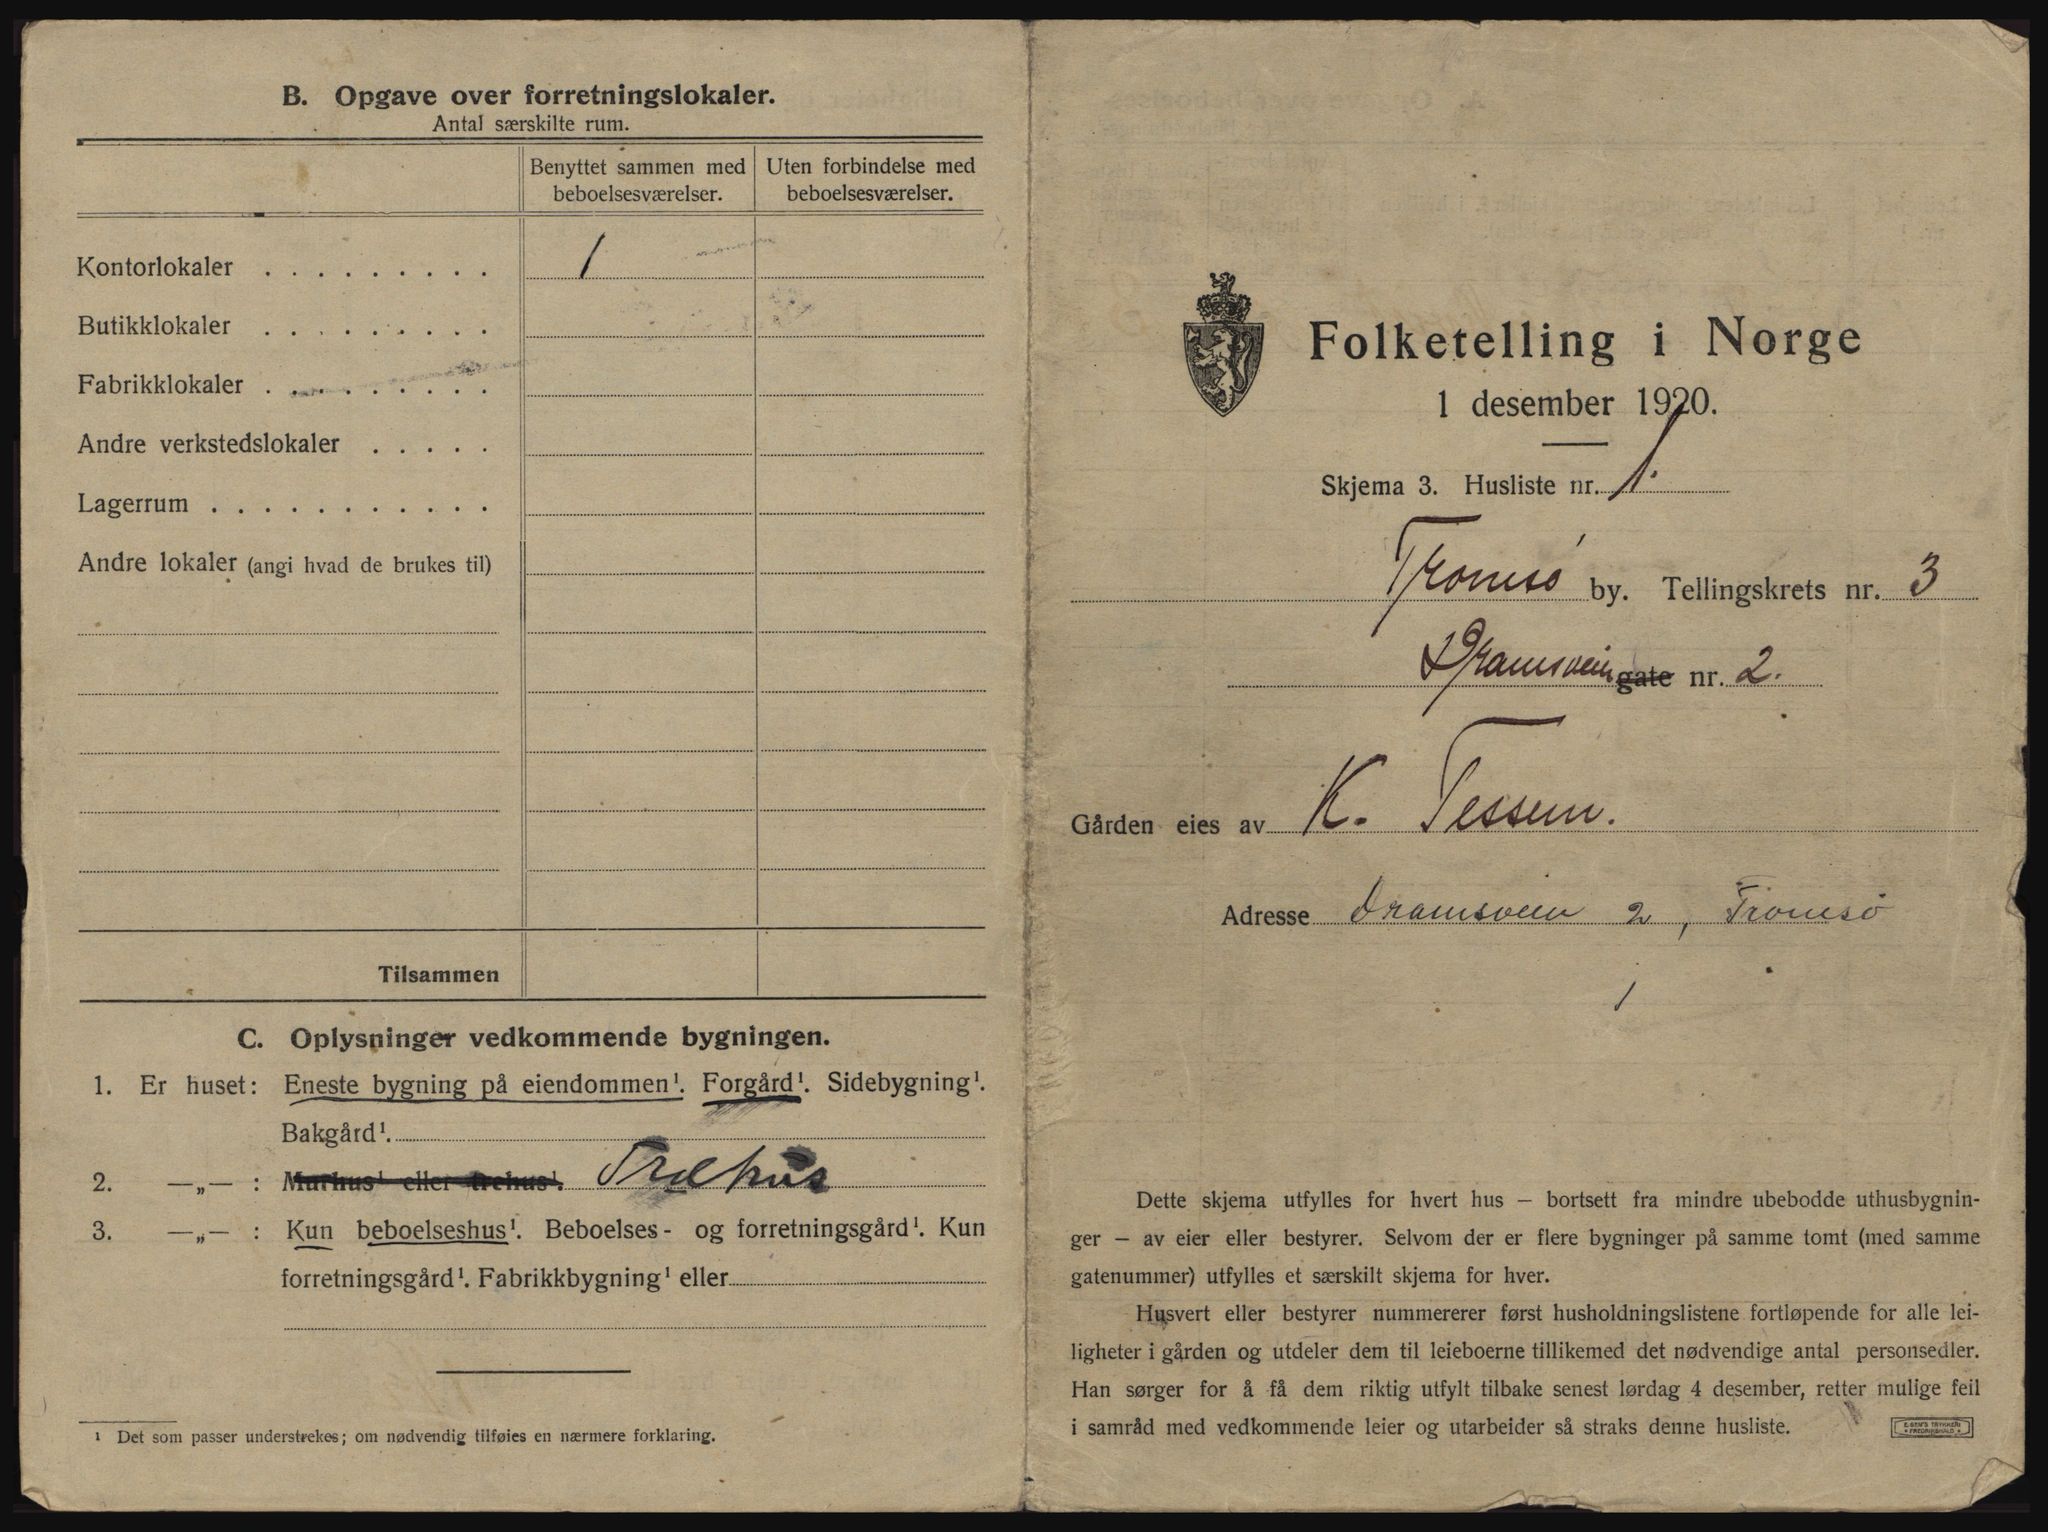 B. Opgave over forretningslokaler.
Antal særskilte rum.
Benyttet sammen med beboelsesværelser.
Uten forbindelse med beboelsesværelser.
Kontorlokaler . . . . . . . . . 1
Butikklokaler . . . . . . . . .
Fabrikklokaler . . . . . . . . .
Andre verkstedslokaler . . . . .
Lagerrum . . . . . . . . . . .
Andre lokaler (angi hvad de brukes til)
Tilsammen
C. Oplysninger vedkommende bygningen.
1. Er huset: Eneste bygning på eiendommen¹. Forgård¹. Sidebygning¹.
Bakgård¹.
2. —„— : Murhus¹ eller trehus¹. Træhus
3. —„— : Kun beboelseshus¹. Beboelses- og forretningsgård¹. Kun
forretningsgård¹. Fabrikkbygning¹ eller
¹ Det som passer understrekes; om nødvendig tilføies en nærmere forklaring.
Folketelling i Norge
1 desember 1920.
Skjema 3. Husliste nr. 1.
Tromsø by. Tellingskrets nr. 3
Dramsveien gate nr. 2.
Gården eies av K. Tessem.
Adresse Dramsveien 2, Tromsø
1
Dette skjema utfylles for hvert hus – bortsett fra mindre ubebodde uthusbygnin-
ger – av eier eller bestyrer. Selvom der er flere bygninger på samme tomt (med samme
gatenummer) utfylles et særskilt skjema for hver.
Husvert eller bestyrer nummererer først husholdningslistene fortløpende for alle lei-
ligheter i gården og utdeler dem til leieboerne tillikemed det nødvendige antal personsedler.
Han sørger for å få dem riktig utfylt tilbake senest lørdag 4 desember, retter mulige feil
i samråd med vedkommende leier og utarbeider så straks denne husliste.